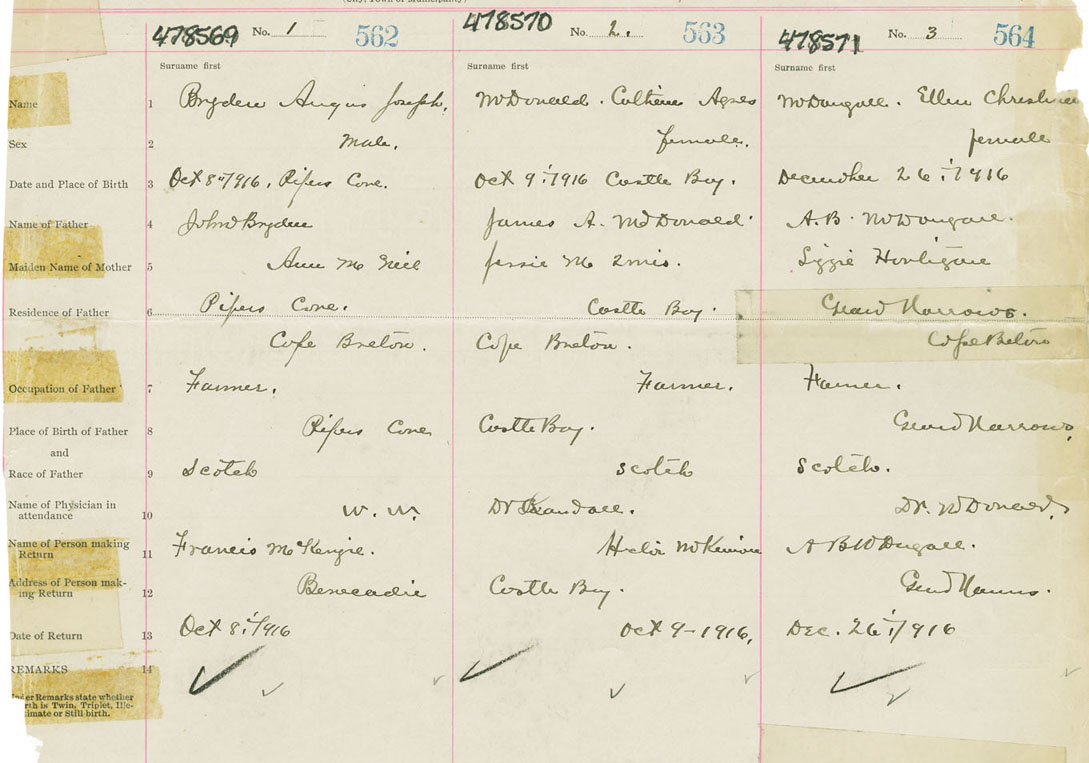 (City, Town or Municipality)
478569 No. 1 562 478570 No. 2. 563 478571 No. 3 564
Surname first Surname first Surname first
Name 1 Bryden Angus Joseph, McDonald. Agnes McDougall. Ellen Christina
Sex 2 Male. female. female
Date and Place of Birth 3 Oct 8"/1916, Pipers Cove. Oct 9"/1916 Castle Bay. December 26"/1916
Name of Father 4 John Bryden James A. McDonald A. B. McDougall.
Maiden Name of Mother 5 Ann McNeil Jessie Lizzie
Residence of Father 6 Pipers Cove. Castle Bay. Grand Narrows.
Cape Breton. Cape Breton. Cape Breton
Occupation of Father 7 Farmer. Farmer. Farmer.
Place of Birth of Father 8 Pipers Cove Castle Bay. Grand Narrows,
and
Race of Father 9 Scotch Scotch Scotch.
Name of Physician in
attendance 10 W. M. Dr. Dr. McDonald,
Name of Person making
Return 11 Francis McKenzie. McKinnon A B McDugall.
Address of Person mak-
ing Return 12 Benacadie Castle Bay. Grand Narrows.
Date of Return 13 Oct 8"/1916 Oct 9-1916, Dec. 26"/1916
REMARKS 14
Under Remarks state whether
birth is Twin, Triplet, Ille-
gitimate or Still birth.